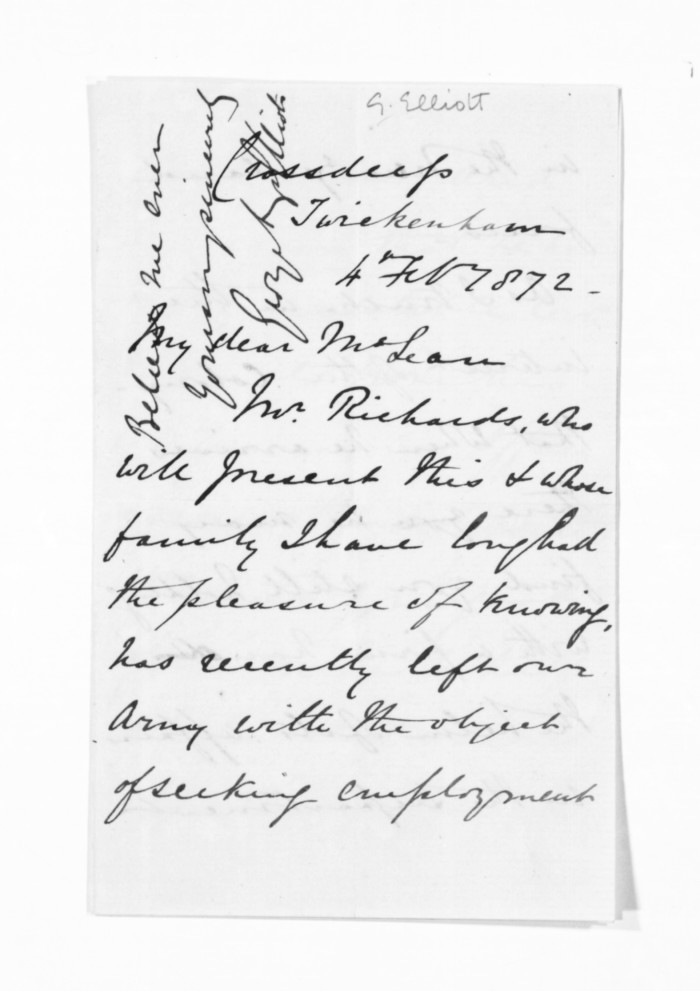 G. Elliott
Crossdeep
Twickenham
4th Feby 1872 -
My dear McLean
Mr. Richards, who
will present this & whose
family I have long had
the pleasure of knowing,
has recently left our
Army with the object
of seeking employment
Believe me ever
Yours very sincerely
George Elliott